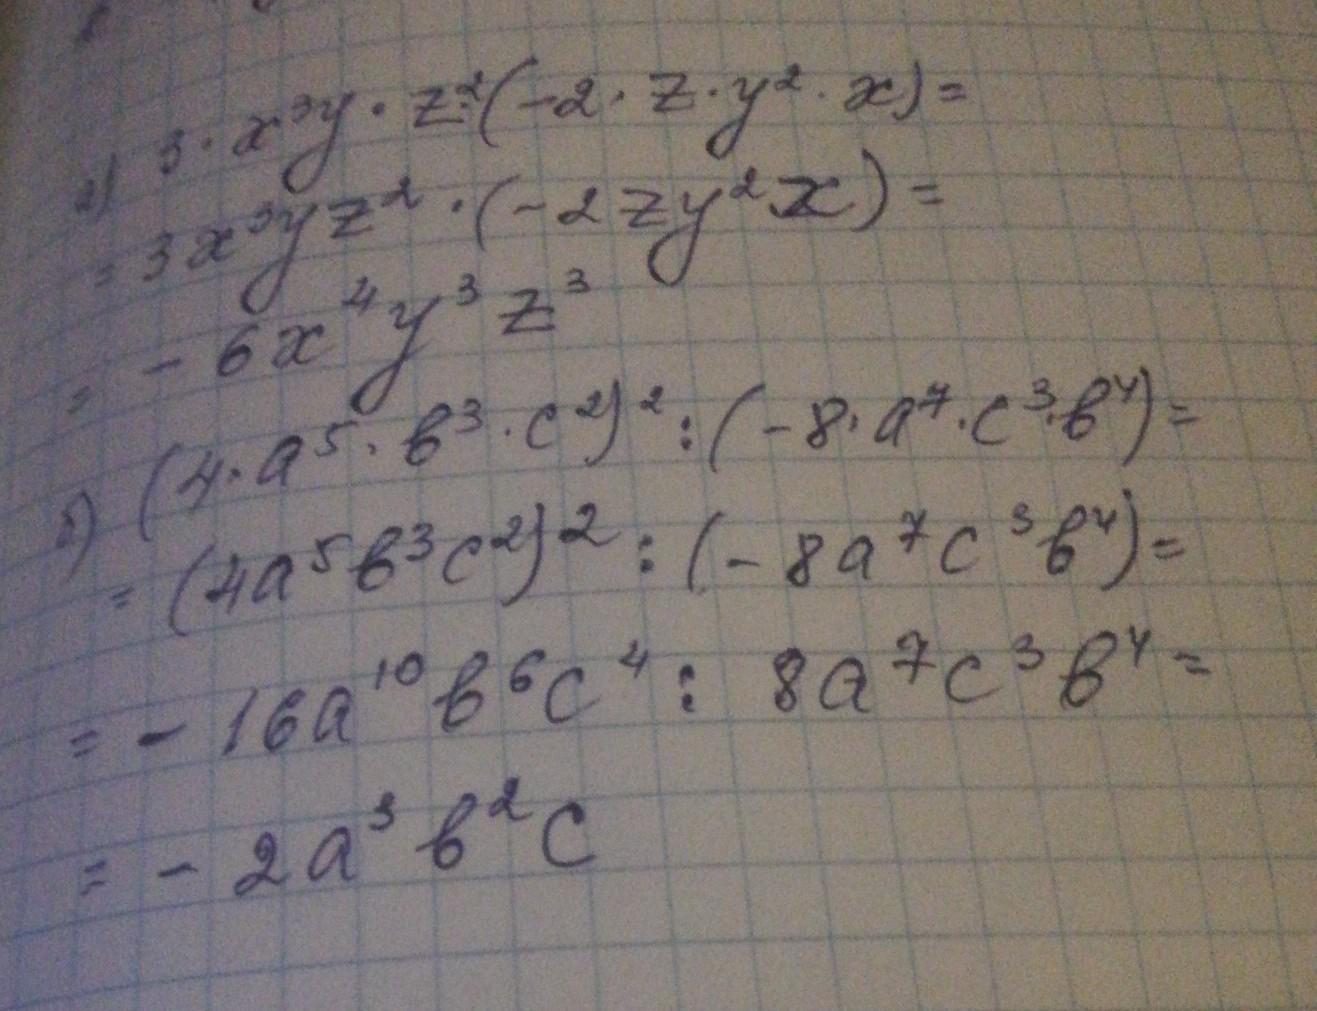 а) 3 · x³y · z² · (-2 · z · y² · x) =
= 3x³yz² · (-2zy²x) =
= -6x⁴y³z³
б) (4 · a⁵ · b³ · c²)² : (-8 · a⁷ · c³ · b⁴) =
= (4a⁵b³c²)² : (-8a⁷c³b⁴) =
= -16a¹⁰b⁶c⁴ : 8a⁷c³b⁴ =
= -2a³b²c